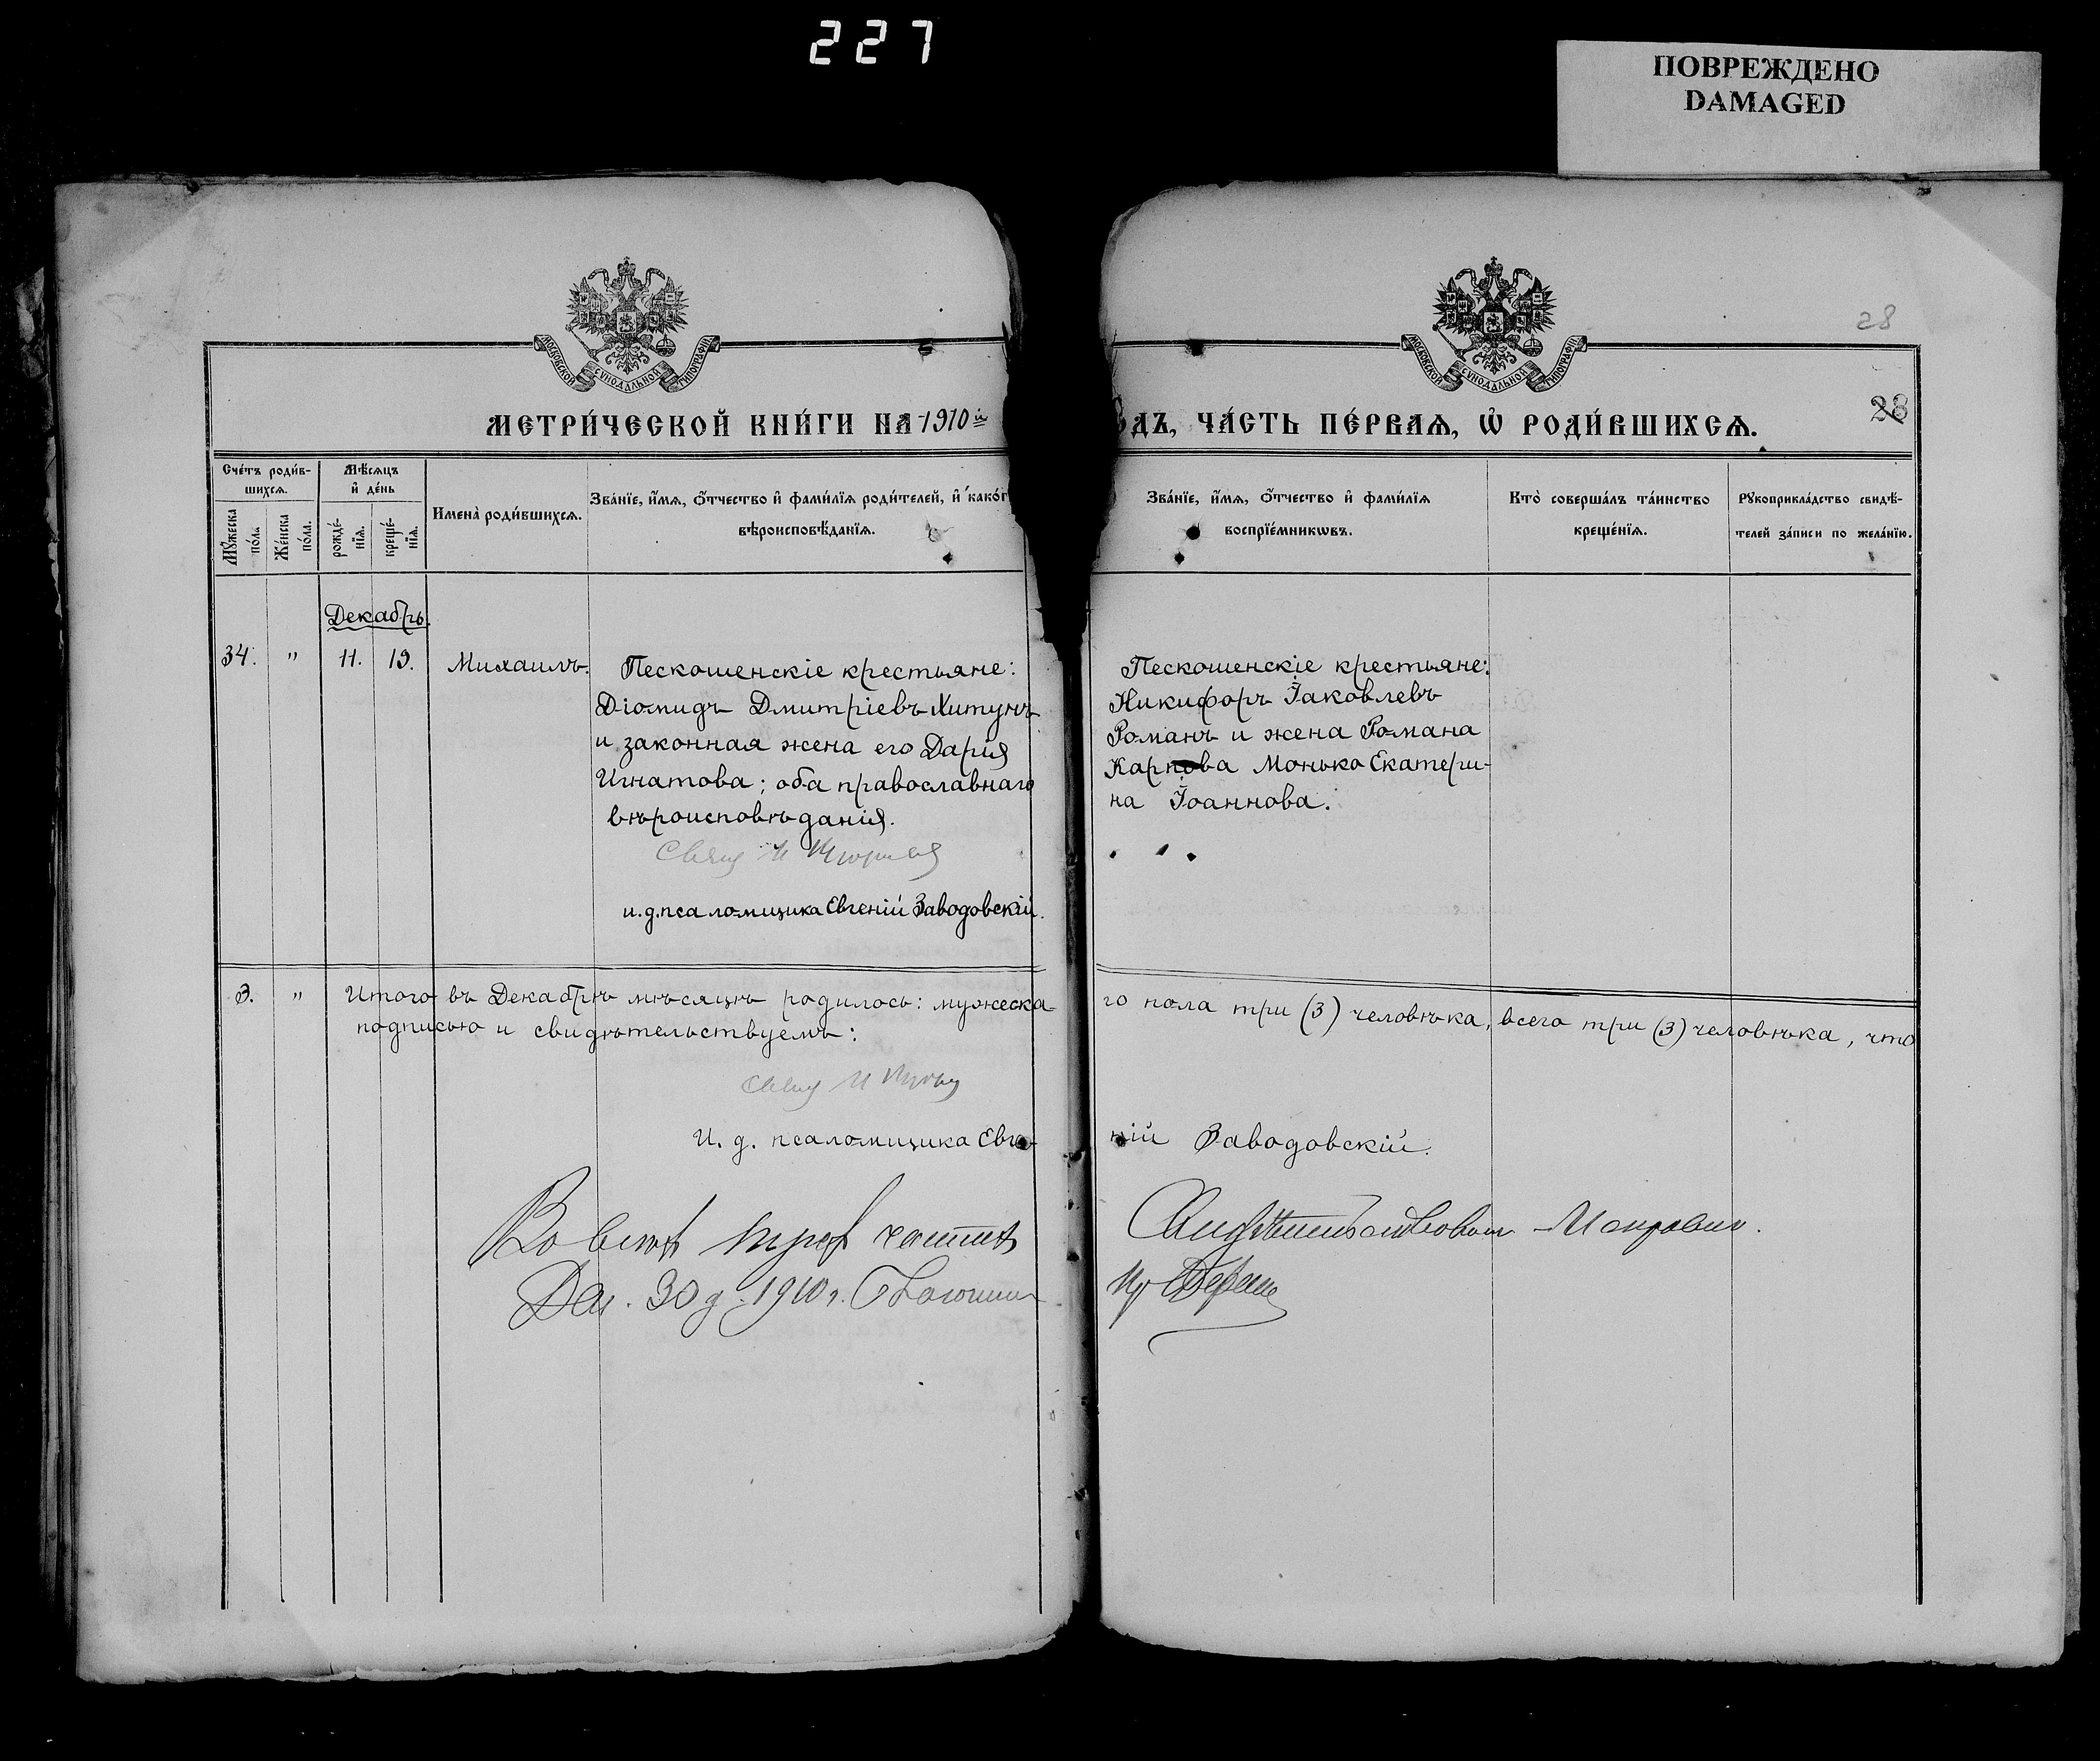 227
ПОВРЕЖДЕНО
DAMAGED
МОСКОВСКОЙ СУНОДАЛЬНОЙ ТИПОГРАФІИ
МОСКОВСКОЙ СУНОДАЛЬНОЙ ТИПОГРАФІИ
28
28
МЕТРИ́ЧЕСКОЙ КНИ́ГИ НА 1910й
ДЪ, ЧА́СТЬ ПЕ́РВАѦ, Ѡ҆ РОДИ́ВШИХСѦ.
Сче́тъ роди́в-
шихсѧ.
Мꙋ́жеска по́ла
Же́нска по́ла.
Мѣ́сѧцъ
и҆ де́нь
рожде́-
нїѧ.
креще́-
нїѧ.
Имена̀ роди́вшихсѧ.
Зва́нїе, и҆́мѧ, ѻ҆́тчество и҆ фами́лїѧ роди́телей, и҆ како́г
вѣроисповѣ́данїѧ.
Зва́нїе, и҆́мѧ, ѻ҆́тчество и҆ фами́лїѧ
воспрїе́мникѡвъ.
Кто̀ соверша́лъ та́инство
креще́нїѧ.
Рꙋкоприкла́дство свидѣ́-
телей за́писи по жела́нїю.
Декабрь.
34. " 11. 19. Михаилъ.
Пескошенскіе крестьяне:
Діомидъ Дмитріевъ Хитунъ
и законная жена его Дарія
Игнатова; оба православнаго
вѣроисповѣданія.
и.д.псаломщика Евгеній Заводовскій.
Пескошенскіе крестьяне:
Никифоръ Іаковлевъ
Романъ и жена Романа
Карпова Монько Екатери-
на Іоаннова.
3. " Итого въ Декабрѣ мѣсяцѣ родилось: мужеска-
го пола три (3) человѣка, всего три (3) человѣка, что
подписью и свидѣтельствуемъ:
И. д. псаломщика Евге-
ній Заводовскій.
30 д. 1910 г.